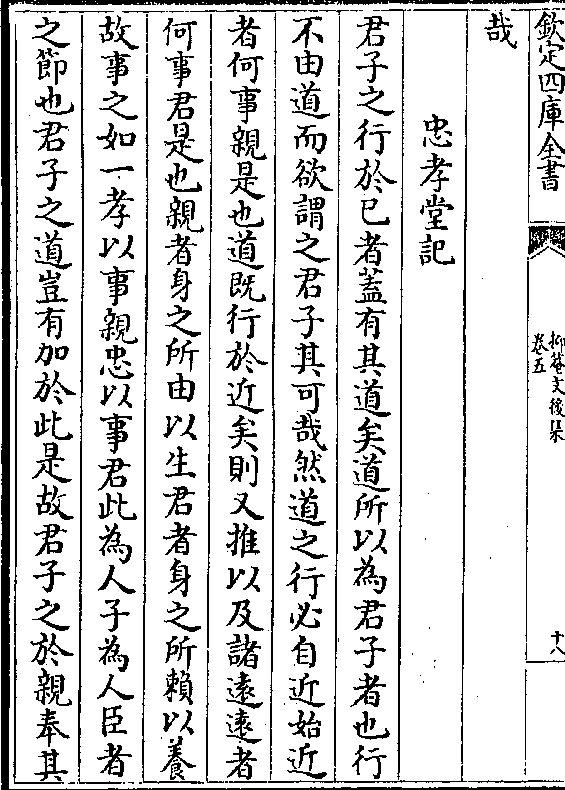 欽定四庫全書
抑菴文後集
卷五
十八
哉
忠孝堂記
君子之行於已者蓋有其道矣道所以為君子者也行
不由道而欲謂之君子其可哉然道之行必自近始近
者何事親是也道既行於近矣則又推以及諸遠遠者
何事君是也親者身之所由以生君者身之所賴以養
故事之如一孝以事親忠以事君此為人子為人臣者
之節也君子之道豈有加於此是故君子之於親奉其